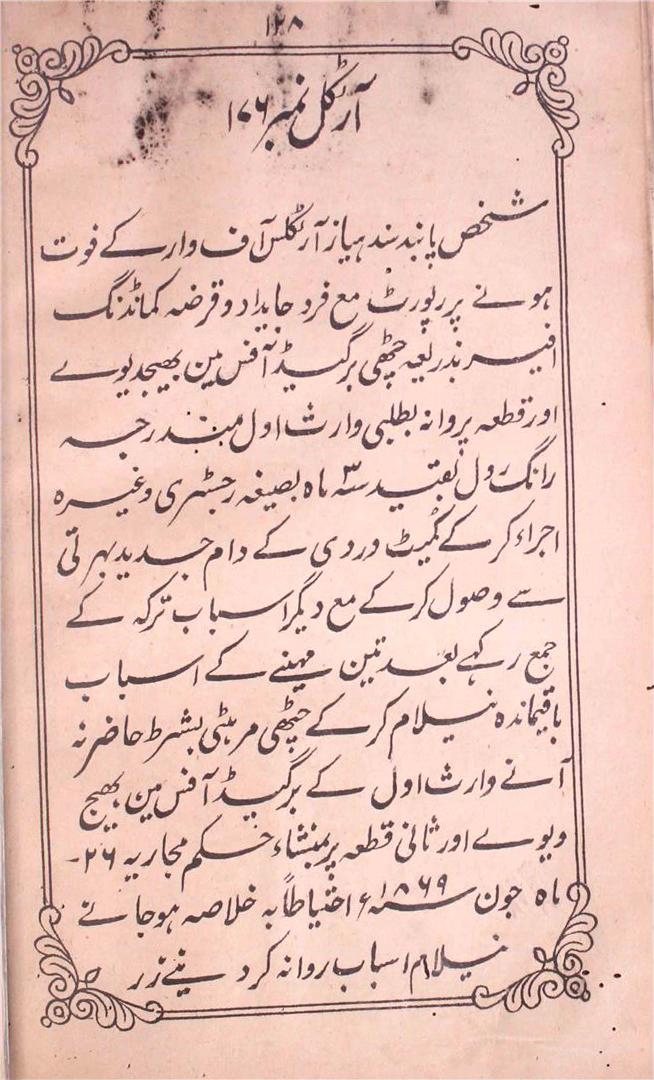 ۱۲۸
آرٹکل نمبر ۱۷۶
شخص پابند ہیاز آرٹکلس آف وار کے فوت
ہونے پر رپورٹ مع فرد جایداد و قرضہ کمانڈنگ
افیسر بذریعہ چٹھی برگیڈ آفس مین بھیجدیوے
اور قطعہ پروانہ بطلبی وارث اول مندرجہ
رانگ رول بقید ۳ ماہ بصیغہ رجسٹری وغیرہ
اجراء کر کے کمیٹ وردی کے دام جدید بہرتی
سے وصول کر کے مع دیگر اسباب ترکہ کے
جمع رکہے بعد تین مہینے کے اسباب
باقیماندہ نیلام کر کے چٹھی مرہٹی بشرط حاضر نہ
آنے وارث اول کے برگیڈ آفس مین بھیج
دیوے اور ثانی قطعہ پر بمنشاء حکم مجاریہ ۲۶-
ماہ جون سنہ ۱۸۶۹ء احتیاطاً بہ خلاصہ ہو جانے
نیلام اسباب روانہ کر دینے زر